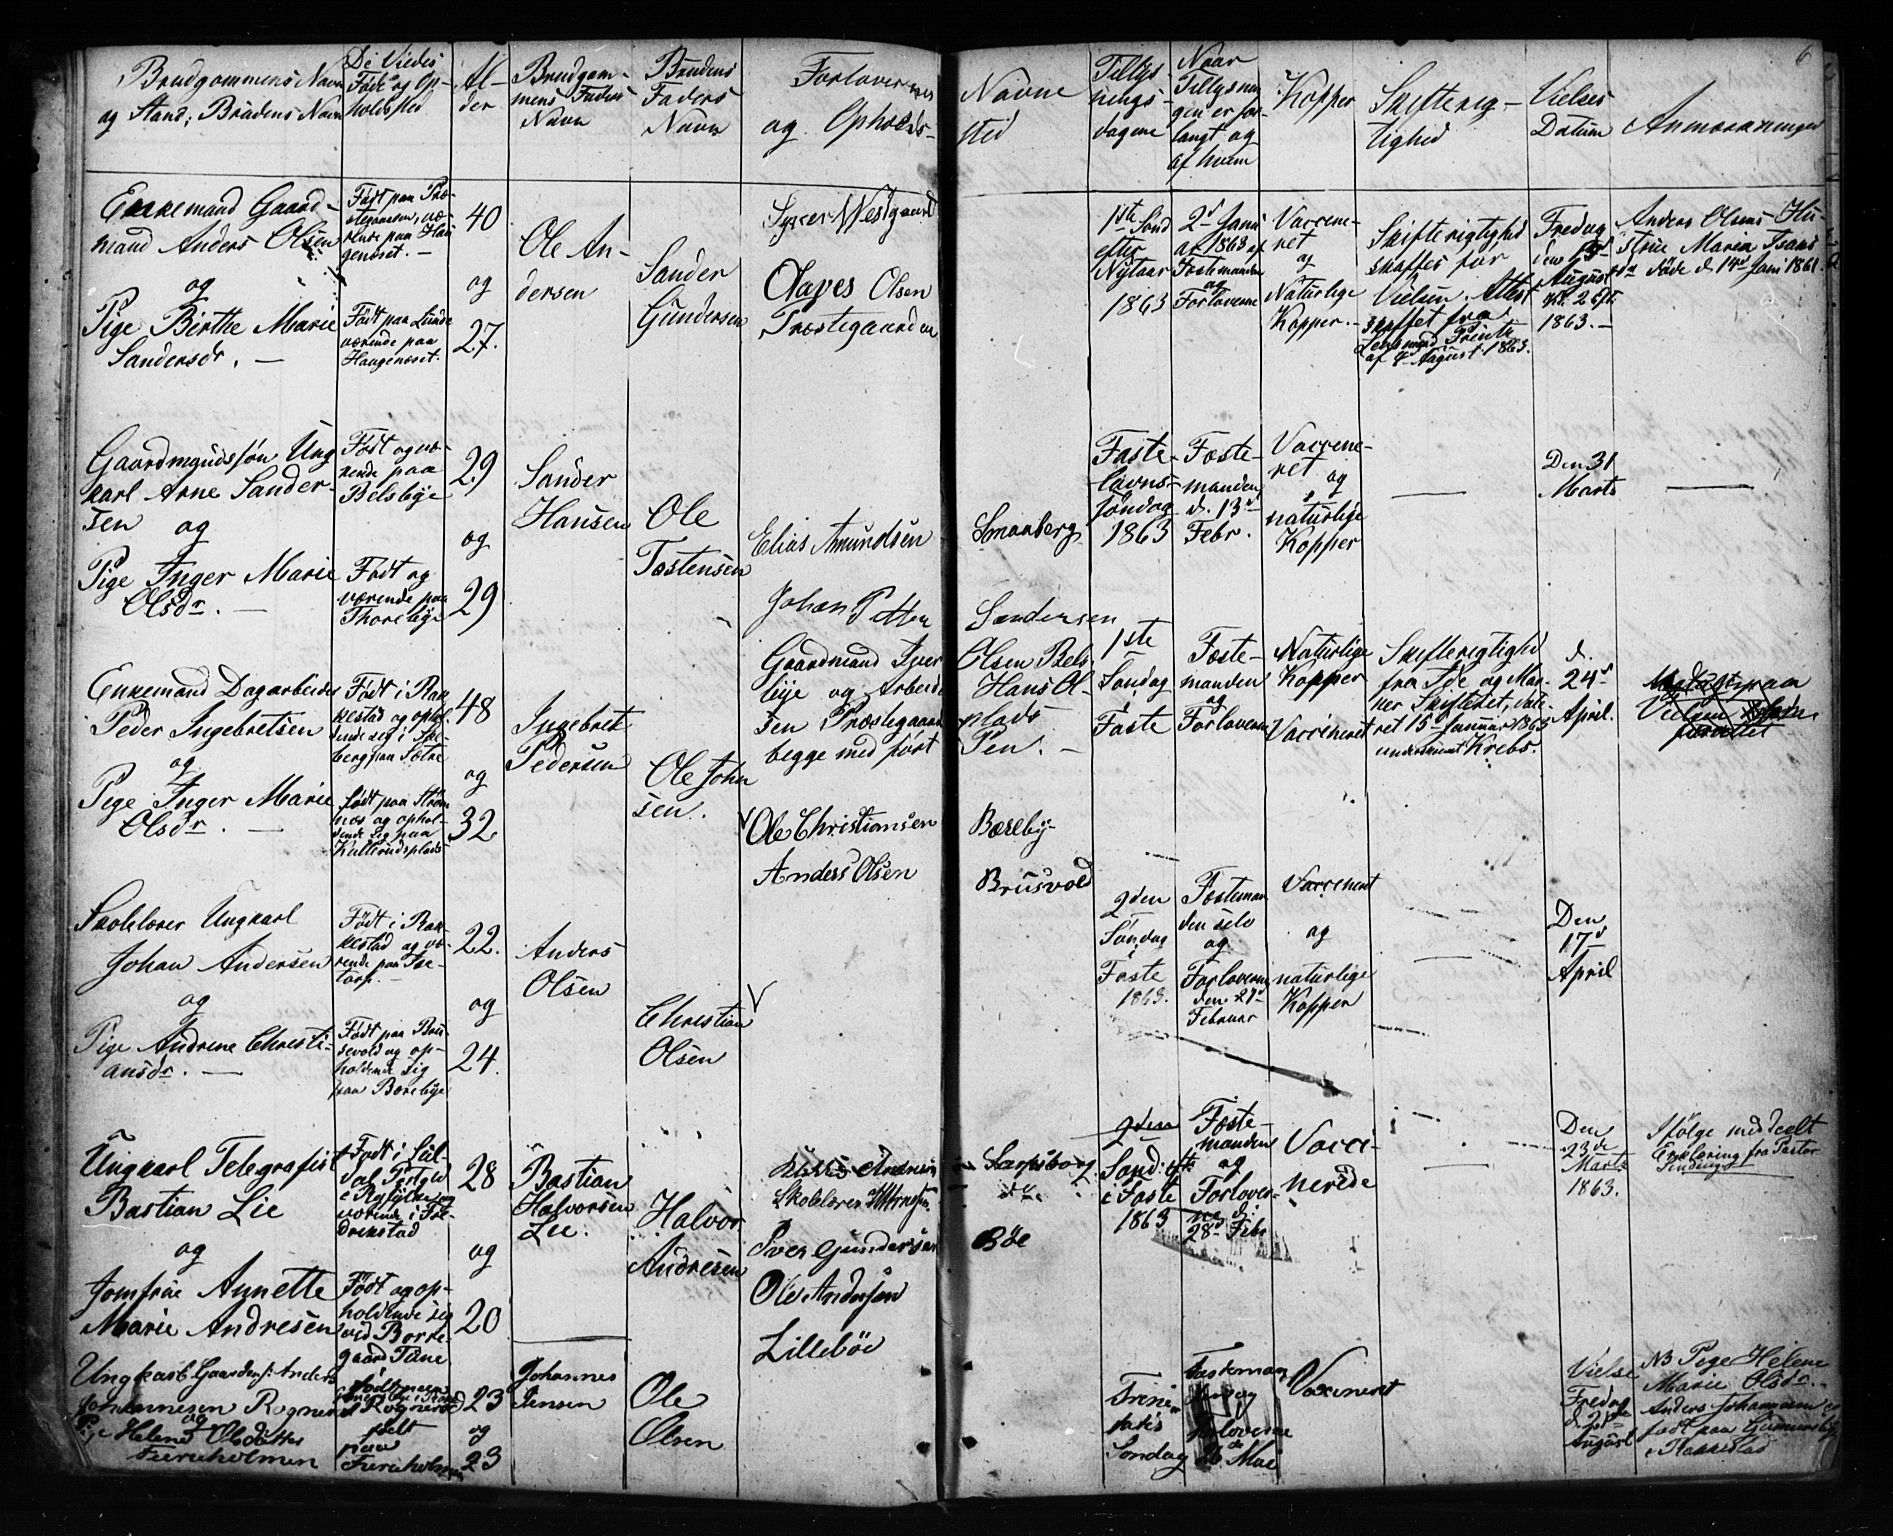 6
Brudgommens Navn
og Stand; Brudens Navn
De Viedes
Føde og Op-
holdsted
Al-
der
Brudgom-
mens Faders
Navn
Brudens
Faders
Navn
Forlovernes
og Opholds-
Navne
sted
Tillys-
nings-
dagene
Naar
Tillysnin
gen er for-
langt og
af hvem
Kopper
Skifterig-
tighed
Vielses
Datum
Anmærkninger
Enkemand Gaard-
mand Anders Olsen
og
Pige Birthe Marie
Sandersdr. —
Født paa Præ-
stegaarden, væ-
rende paa Hau
genæset. —
Født paa Lunde
værende paa
Haugenæset.
40
og
27.
Ole An-
dersen
Sander
Gundersen
Syver Westgaard
Olaves Olsen
Præstegaarden
1ste Sønd
efter
Nytaar
1863
2d Janu
ar 1863 af
Fæstemanden
og
Forloverne
Vaccine-
ret
og
Naturlige
Kopper. —
Skifterigtighed
skaffes før
Vielsen. Attest
skaffet fra
Lensmand
af August 1863.
Fredag
den
August
1863. —
Anders Olsens Hu-
strue Maria
døde d. 14d Juni 1861.
Gaardmandssøn Ung
karl Arne Sander-
sen og
Pige Inger Marie
Olsdr. —
Født og væ-
rende paa
Belsbye
Født og
værende paa
Thorebye
29
og
29
Sander
Hansen
Ole
Tostensen
Elias Amundsen
Johan Petter
Smaaberg
Sandersen
Faste-
lavns-
søndag
1863
Fæste-
manden
d. 13d
Febr.
Vaccine-
ret
og
naturlige
Kopper
Den 31
Marts
Enkemand Dagarbeider
Peder Ingebretsen
og
Pige Inger Marie
Olsdr. —
Født i Rak
kestad og ophol
dende sig i
berg paa Sætre
født paa Strøm
næs og ophol-
dende sig paa
Kullerudsplads
48
og
32.
Ingebret
Pedersen
Ole John
sen.
Gaardmand Iver
bye og Arbeide
sen Præstegaards
begge med ført
Olsen Bels
Hans Ol-
plads
Pen. —
1ste
Søndag
i
Faste
Fæste-
manden
og
Forloverne
Naturlige
Kopper
Vaccineret
Skifterigtighed
fra Ide og Mar-
ker Skifteret, date-
ret 15 Januar 1863
underskrevet Krebs.
d.
24d
April.
Vielsen
Skolelærer Ungkarl
Johan Andersen
og
Pige Andrine Christi-
ansdr. —
Født i Rak-
kestad og væ-
rende paa Tæ-
torp. —
Født paa Bru-
sevold og op-
holdene sig
paa Bærebye
22.
og
24.
Anders
Olsen
Christian
Olsen
Ole Christiansen
Anders Olsen
Bærebye
Brusvold
2den
Søndag
i
Faste
1863.
Fæsteman
den selv
og
Forloverne
den 21d
Februar
Vaccineret
og
naturlige
Kopper
Den
17d
April
Ungkarl Telegrafist
Bastian Lie
og
Jomfrue Annette
Marie Andresen
Født i
dal Prstgld
værende i Fre-
drikstad
Født og op-
holdende sig
ved Borre-
gaard Tune
28
og
20
Bastian
Halvorsen
Lie.
Halvor
Andresen
Skolelærer
Iver Gundersen
Ole Andersen
Lillebøe
Sarpsborg
Bøe
2den
Sønd:
i Faste
1863
Fæste-
manden
og
Forlover-
ne d:
28d Febr
Vacci-
nerede
Den
23de
Marts
1863.
Ifølge meddeelt
Erklæring fra Pastor
Ungkarl Gaardms: Anders
Johannesen Rognerø
og
Pige Helene Olsdatter
Furuholmen
født paa
Rognerød
født
paa
Furuholmen
23
og
23
Johannes
Jensen
Ole
Olsen
Trini-
tatis
Søndag
Fæsteman
den og
Forloverne
Mai
Vaccineret
Vielse
Fredag
d. 21de
August
NB Pige Helene
Marie Olsdr. —
Anders Johannesen er
født paa
i Rakkestad